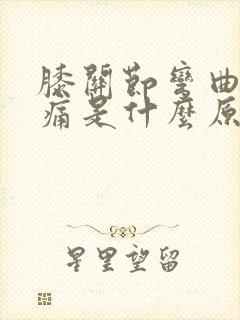 膝關節彎曲
痛是什麼原
星里望留